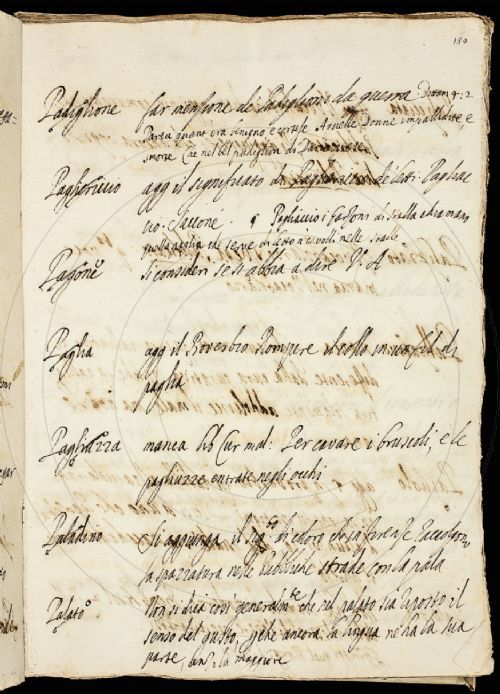 180
Padiglione far menzione de Padiglioni da guerra Dittam 4: 2
Parea quant era benigno e cortese A quelle Donne impallidite, e
smorte Che nel bel padiglion di Dario
Pagliericcio agg il significato di de letti. Pagliac
cio. Saccone. Pagliaccio i garzoni di stalla chiaman
quella paglia che serve di letto a cavalli nelle stalle
Pagone si consideri se si abbia a dire V. A
Paglia agg il Proverbio Rompere il collo in un fil di
paglia
Pagliuzza manca lib Cur mal: Per cavare i bruscoli, e le
pagliuzze entrate negli occhi
Paladino Si aggiunga il sigto di coloro che in Firenze raccolgon
la spazzatura nelle pubbliche strade con la pala
Palato Non si dica così generalmte che nel palato sia riposto il
senso del gusto, perche ancora la lingua ne ha la sua
parte, anzi la maggiore